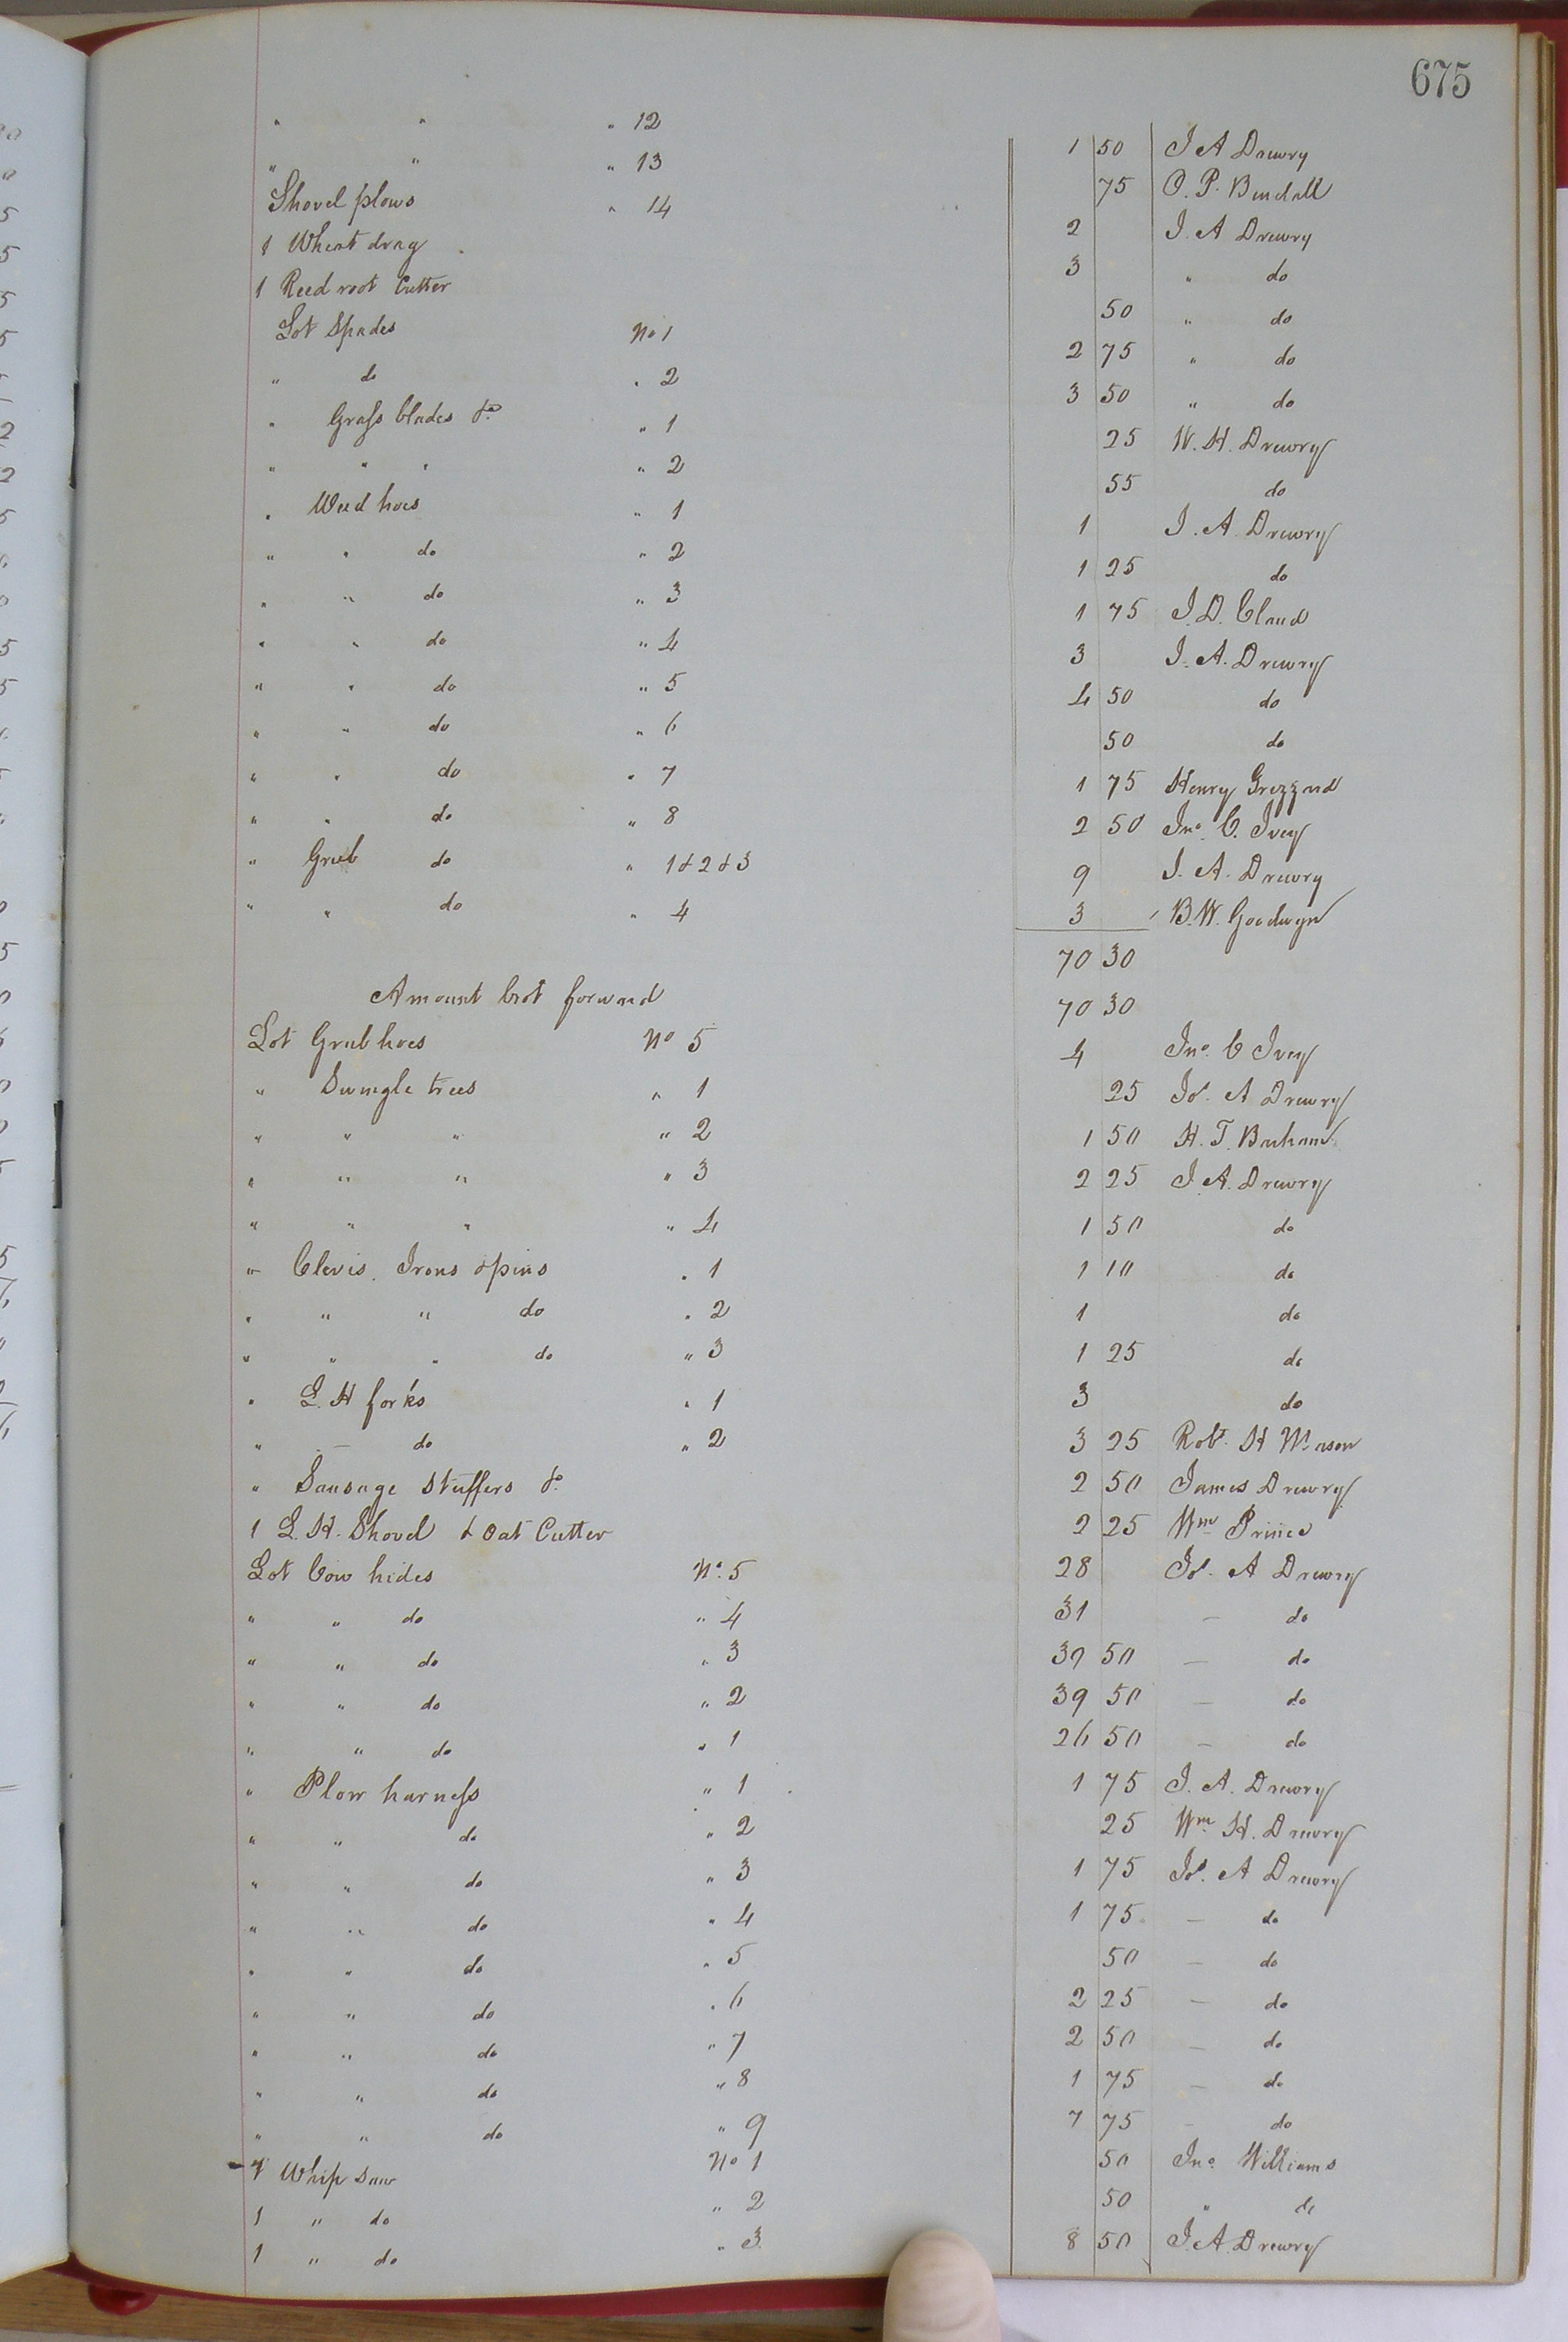 675
" " " 12 1 50 J A Drewry
" " " 13 75 O. P. Bendall
Shovel plows " 14 2 J. A Drewry
1 Wheat drag 3 " do
1 Reed root Cutter 50 " do
Lot Spades No 1 2 75 " do
" do " 2 3 50 " do
" Grass blades &c " 1 25 W. H. Drewry
" " " " 2 55 do
" Weed hoes " 1 1 J. A. Drewry
" " do " 2 1 25 do
" " do " 3 1 75 J. D. Claud
" " do " 4 3 J. A. Drewry
" " do " 5 4 50 do
" " do " 6 50 do
" " do " 7 1 75 Henry Grizzard
" " do " 8 2 50 Jno. C. Ivey
" Grub do " 1 & 2 & 3 9 J. A. Drewry
" " do " 4 3 B. W. Goodwyn
70 30
Amount brot forward 70 30
Lot Grub hoes No 5 4 Jno. C Ivey
" Swingle trees " 1 25 Jos. A Drewry
" " " " 2 1 50 H. T. Barham
" " " " 3 2 25 J. A. Drewry
" " " " 4 1 50 do
" Clevis, Irons & pins " 1 1 10 do
" " " do " 2 1 do
" " " do " 3 1 25 do
" L. H forks " 1 3 do
" — do " 2 3 25 Robt. H Mason
" Sausage Stuffers &c. 2 50 James Drewry
1 L. H. Shovel & Oat Cutter 2 25 Wm Prince
Lot Cow hides No. 5 28 Jos. A Drewry
" " do " 4 31 — do
" " do " 3 39 50 — do
" " do " 2 39 50 — do
" " do " 1 26 50 — do
" Plow harness " 1 1 75 J. A. Drewry
" " do " 2 25 Wm H. Drewry
" " do " 3 1 75 Jos. A Drewry
" " do " 4 1 75 — do
" " do " 5 50 — do
" " do " 6 2 25 — do
" " do " 7 2 50 — do
" " do " 8 1 75 — do
" " do " 9 7 75 — do
1 Whip Saw No 1 50 Jno. Williams
1 " do " 2 50 " do
1 " do " 3 8 50 J. A. Drewry